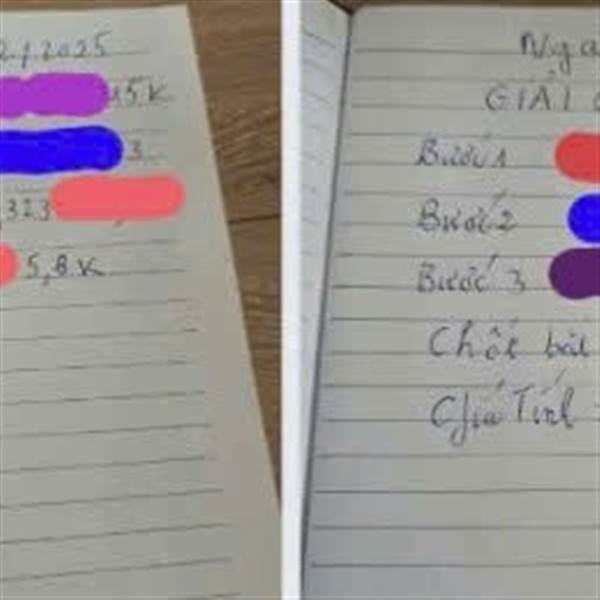 2/2025
15K
3
323
5,8K
Nga
GIẢI
Bước 1
Bước 2
Bước 3
Chốt bài